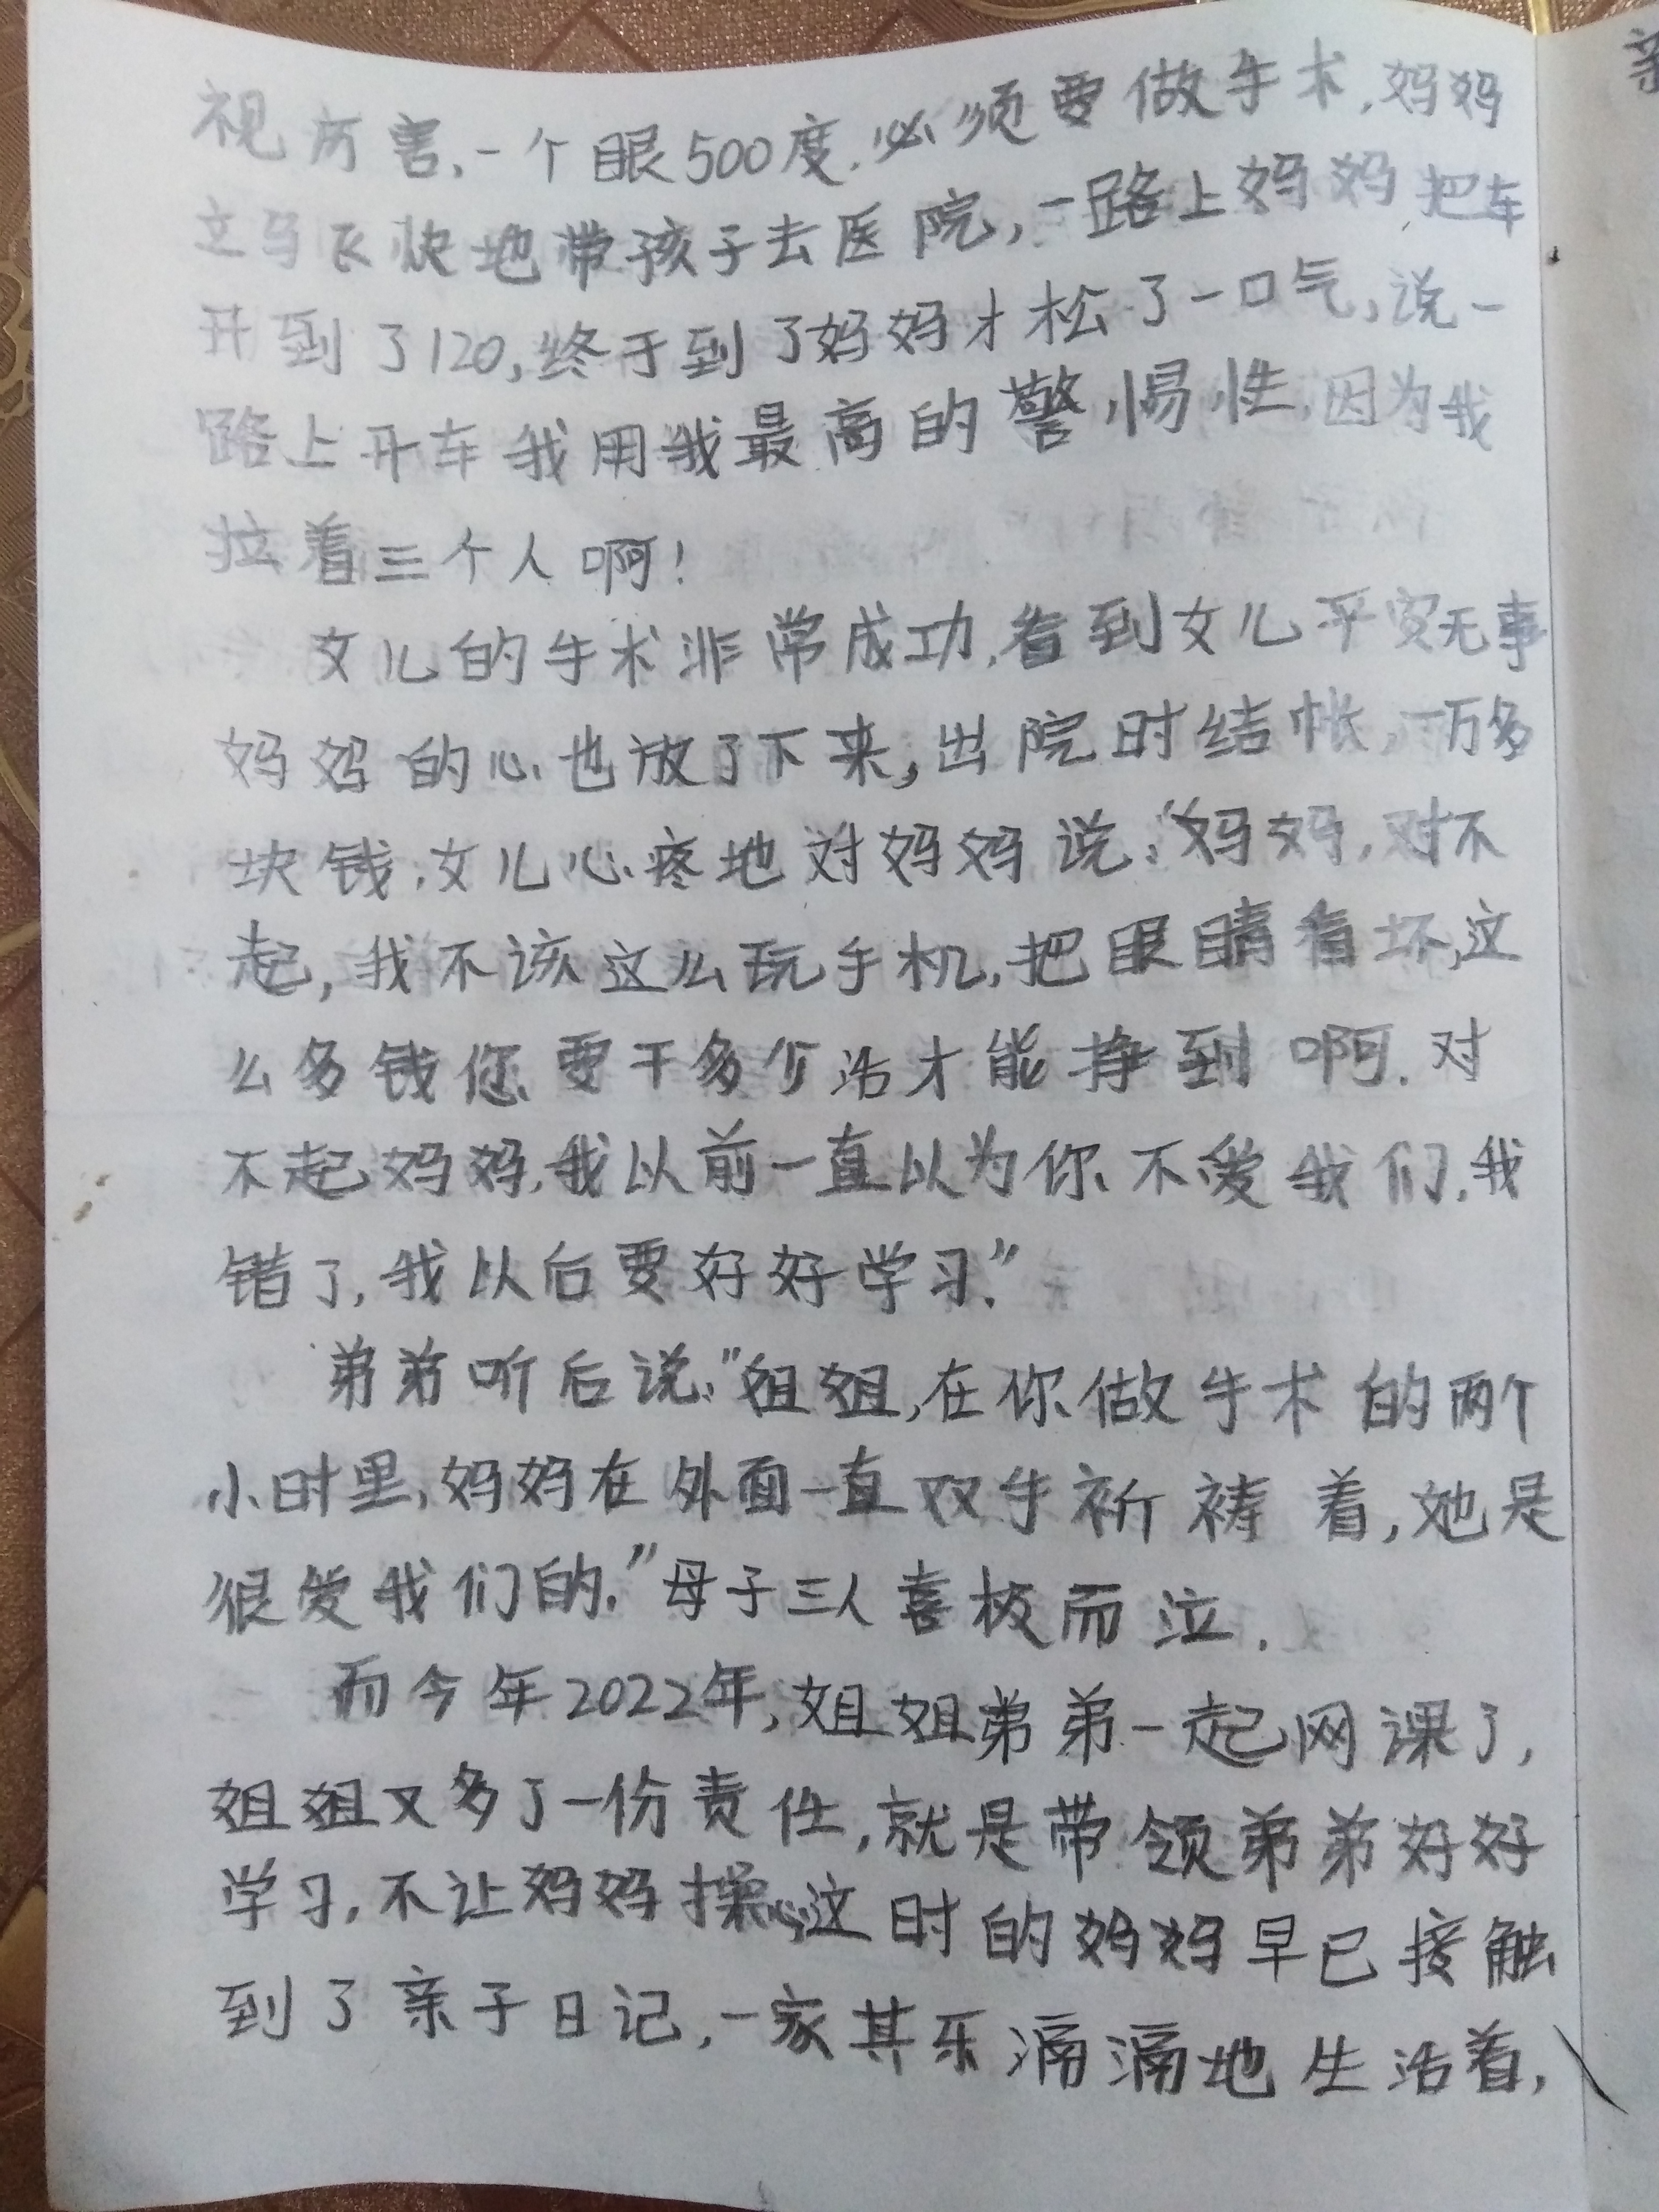 视厉害,一个眼500度.必须要做手术,妈妈
立马飞快地带孩子去医院,一路上妈妈把车
开到了120,终于到了妈妈才松了一口气,说一
路上开车我用我最高的警惕性,因为我
拉着三个人啊!
女儿的手术非常成功,看到女儿平安无事
妈妈的心也放了下来,出院时结帐,一万多
块钱,女儿心疼地对妈妈说:“妈妈,对不
起,我不该这么玩手机,把眼睛看坏,这
么多钱您要干多少活才能挣到啊.对
不起妈妈,我以前一直以为你不爱我们,我
错了,我以后要好好学习.”
弟弟听后说:"姐姐,在你做手术的两个
小时里,妈妈在外面一直双手祈祷着,她是
很爱我们的."母子三人喜极而泣.
而今年2022年,姐姐弟弟一起网课了,
姐姐又多了一份责任,就是带领弟弟好好
学习,不让妈妈操心,这时的妈妈早已接触
到了亲子日记,一家其乐滴滴地生活着,